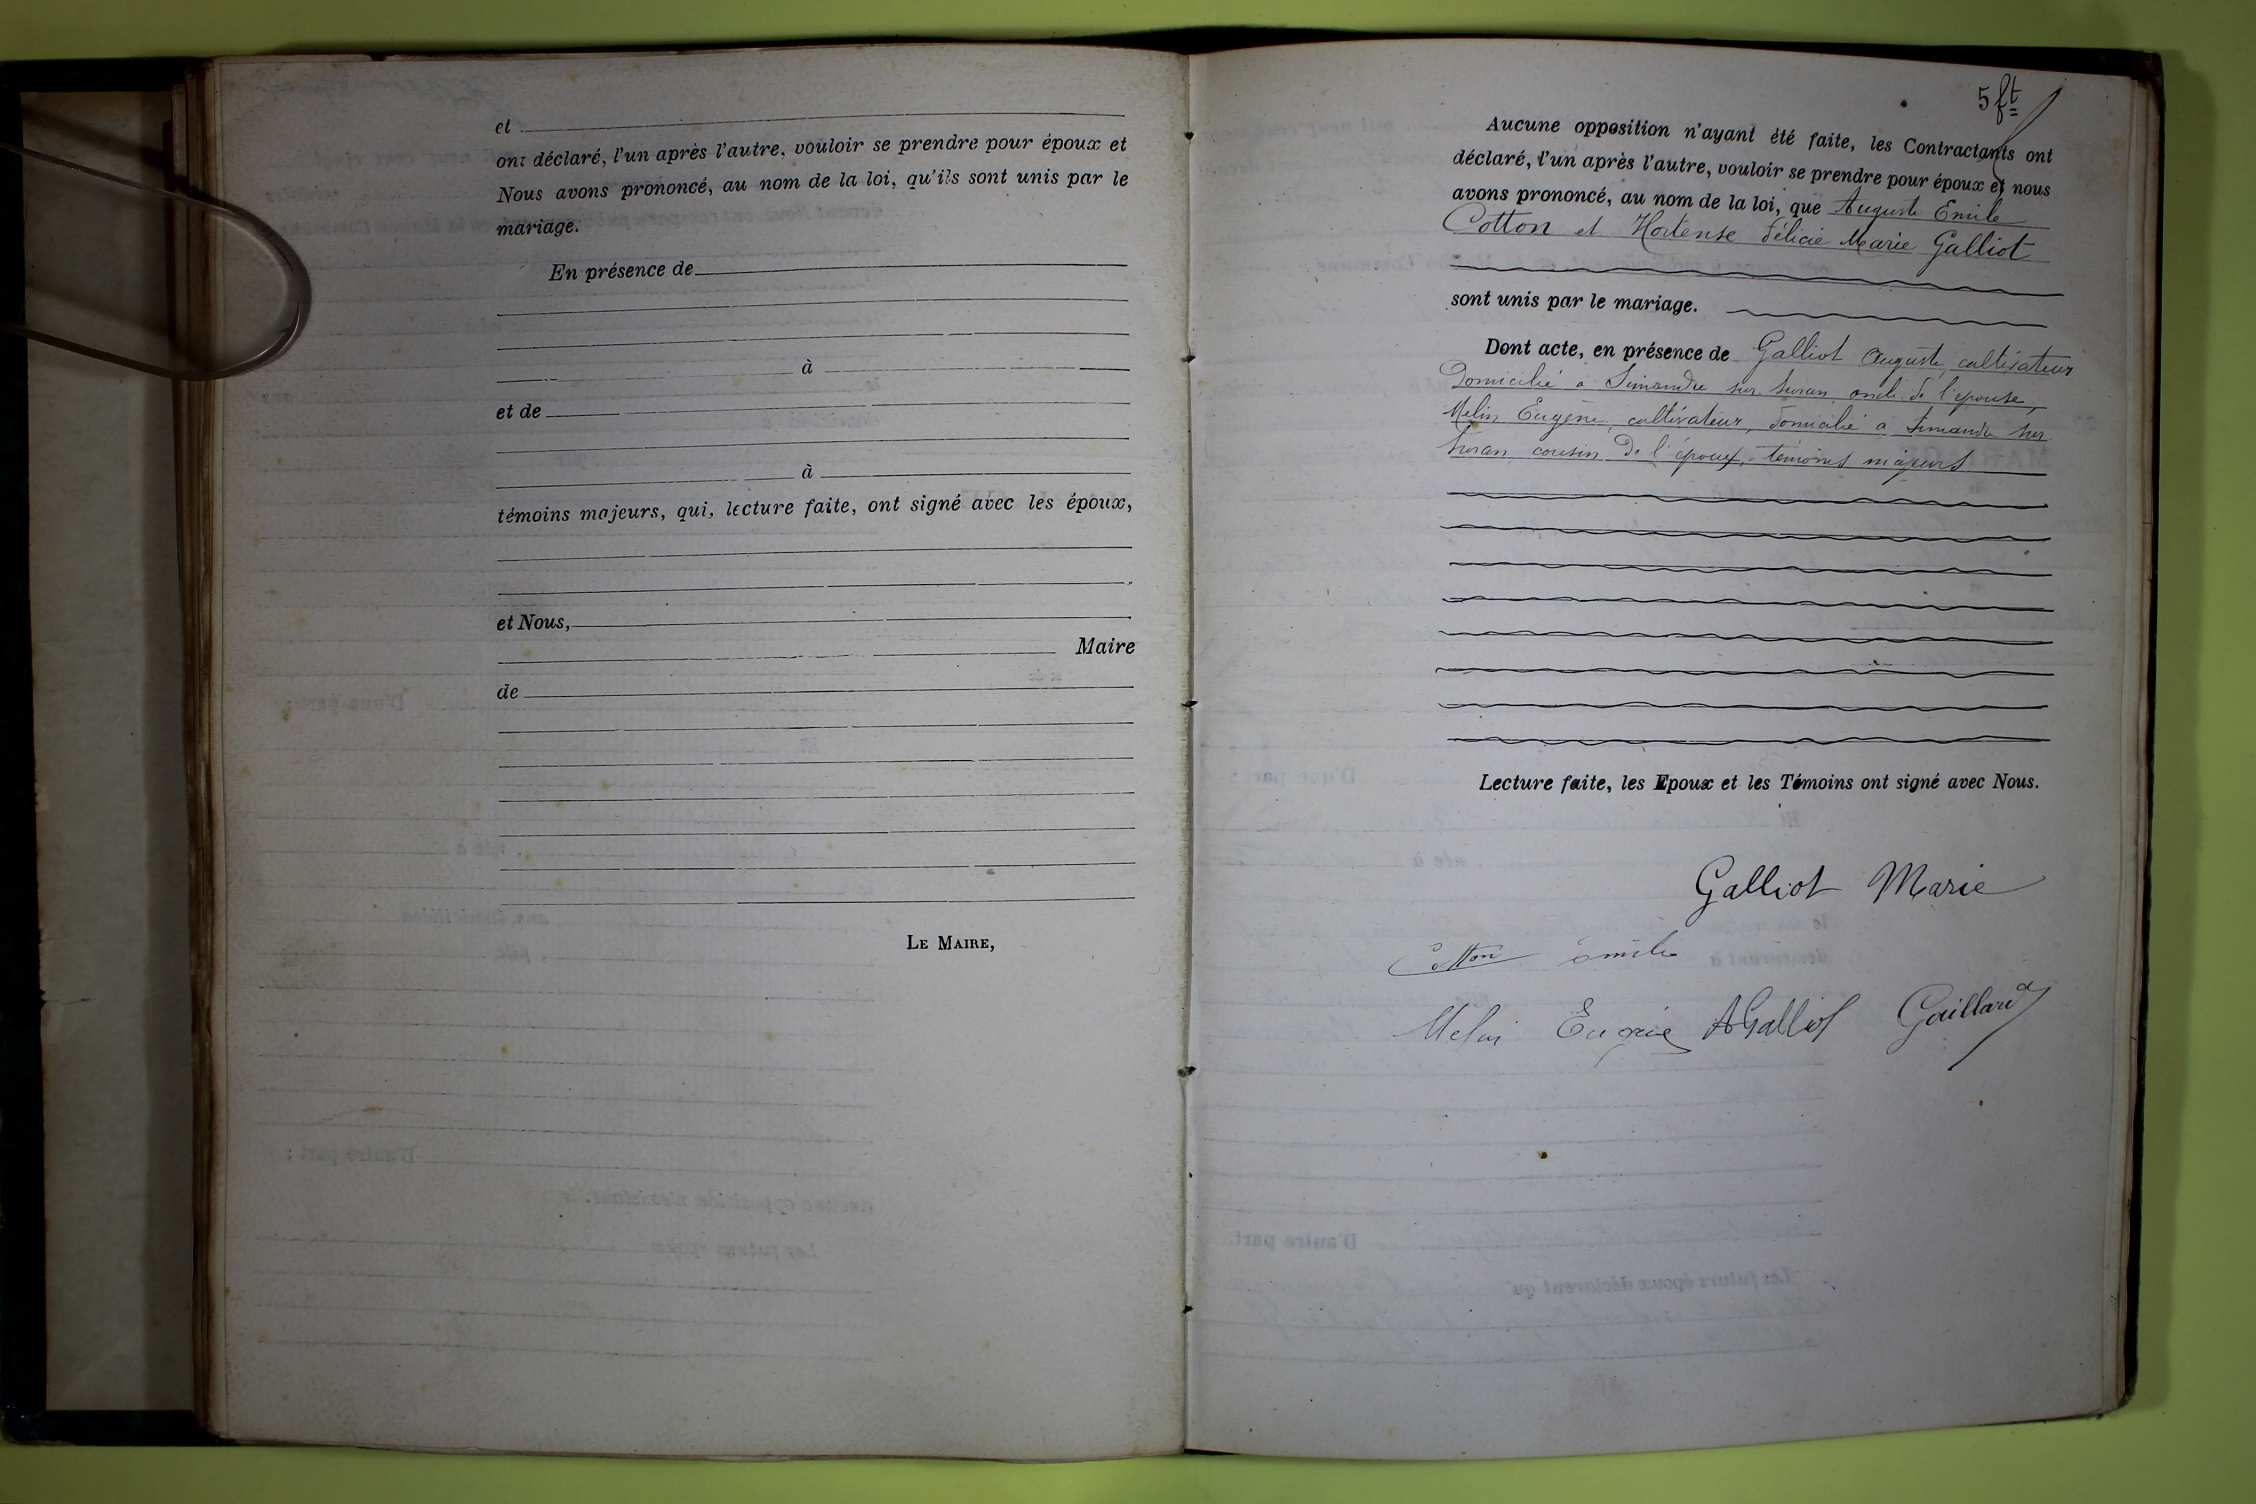 et
ont déclaré, l'un après l'autre, vouloir se prendre pour époux et
Nous avons prononcé, au nom de la loi, qu'ils sont unis par le
mariage.
En présence de
à
et de
à
témoins majeurs, qui, lecture faite, ont signé avec les époux,
et Nous,
Maire
de
LE MAIRE,
5 ft
Aucune opposition n'ayant été faite, les Contractants ont
déclaré, l'un après l'autre, vouloir se prendre pour époux et nous
avons prononcé, au nom de la loi, que Auguste Emile
Cotton et Hortense Félicie Marie Galliot
sont unis par le mariage.
Dont acte, en présence de Galliot Auguste, cultivateur
Domicilié à Simandre sur Suran, oncle de l'épouse,
Melin Eugène, cultivateur, domicilié à Simandre sur
Suran, cousin de l'époux, témoins majeurs
Lecture faite, les Epoux et les Témoins ont signé avec Nous.
Galliot Marie
Cotton émile
Melin Eugène AGalliot Gaillard